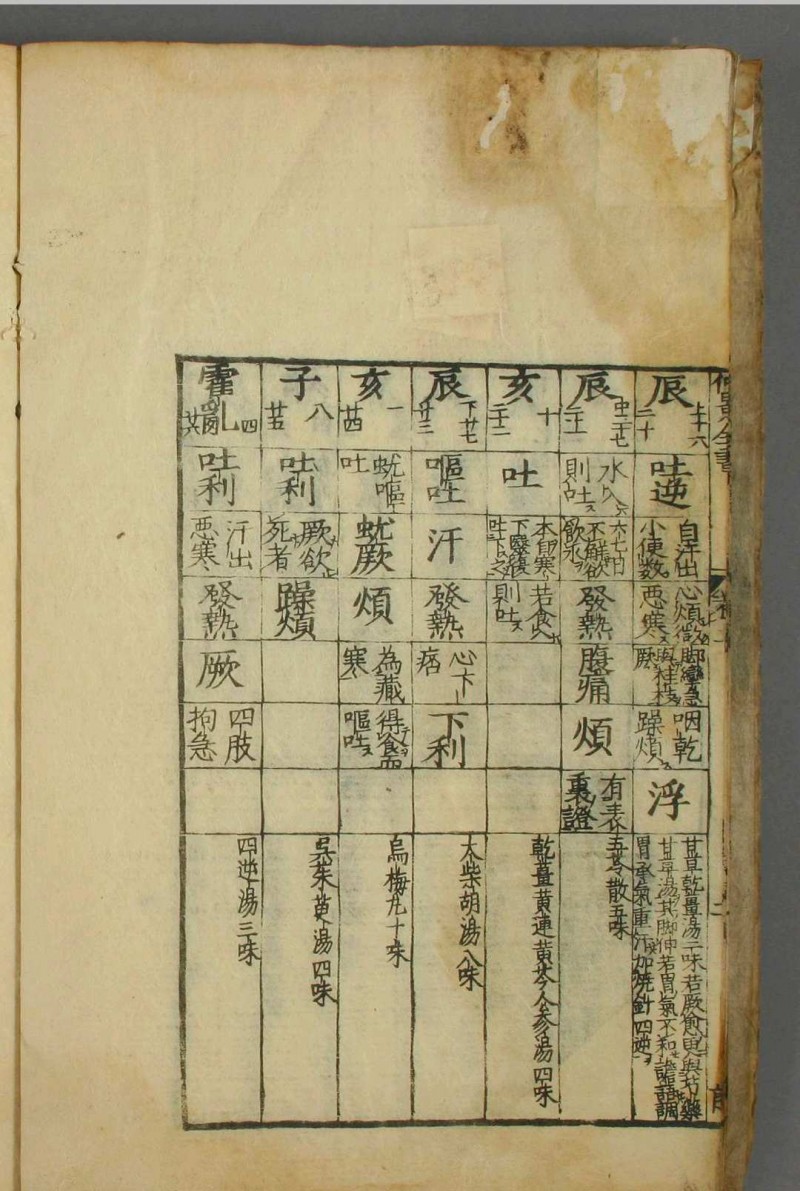 辰
上十六
二十
吐逆
自汗出
小便数
心煩微
悪寒
脚攣急
與桂枝
厥
咽乾
躁煩
浮
甘草乾薑湯二味若厥愈更與芍藥
甘草湯其脚伸若胃氣不和譫語調
胃承氣重汗加焼針四逆
辰
中三十七
二十一
水入
則吐
六七日
不觧欲
飲水
發熱
腹痛
煩
有表
裏證
五苓散五味
亥
十
二十二
吐
本自寒
下醫復
吐下之
若食
則吐
乾薑黄連黄芩人参湯四味
辰
下廿七
廿三
嘔吐
汗
發熱
心下
痞
下利
大柴胡湯八味
亥
一
廿四
蚘嘔
吐
蚘厥
煩
為藏
寒
得食而
嘔吐
烏梅丸十味
子
八
廿五
吐利
厥欲
死者
躁煩
呉茱萸湯四味
霍乱
四
廿六
吐利
汗出
悪寒
發熱
厥
四肢
拘急
四逆湯三味